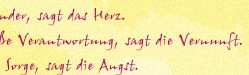 nder, sagt das Herz.
ße Verantwortung, sagt die Vernunft.
Sorge, sagt die Angst.